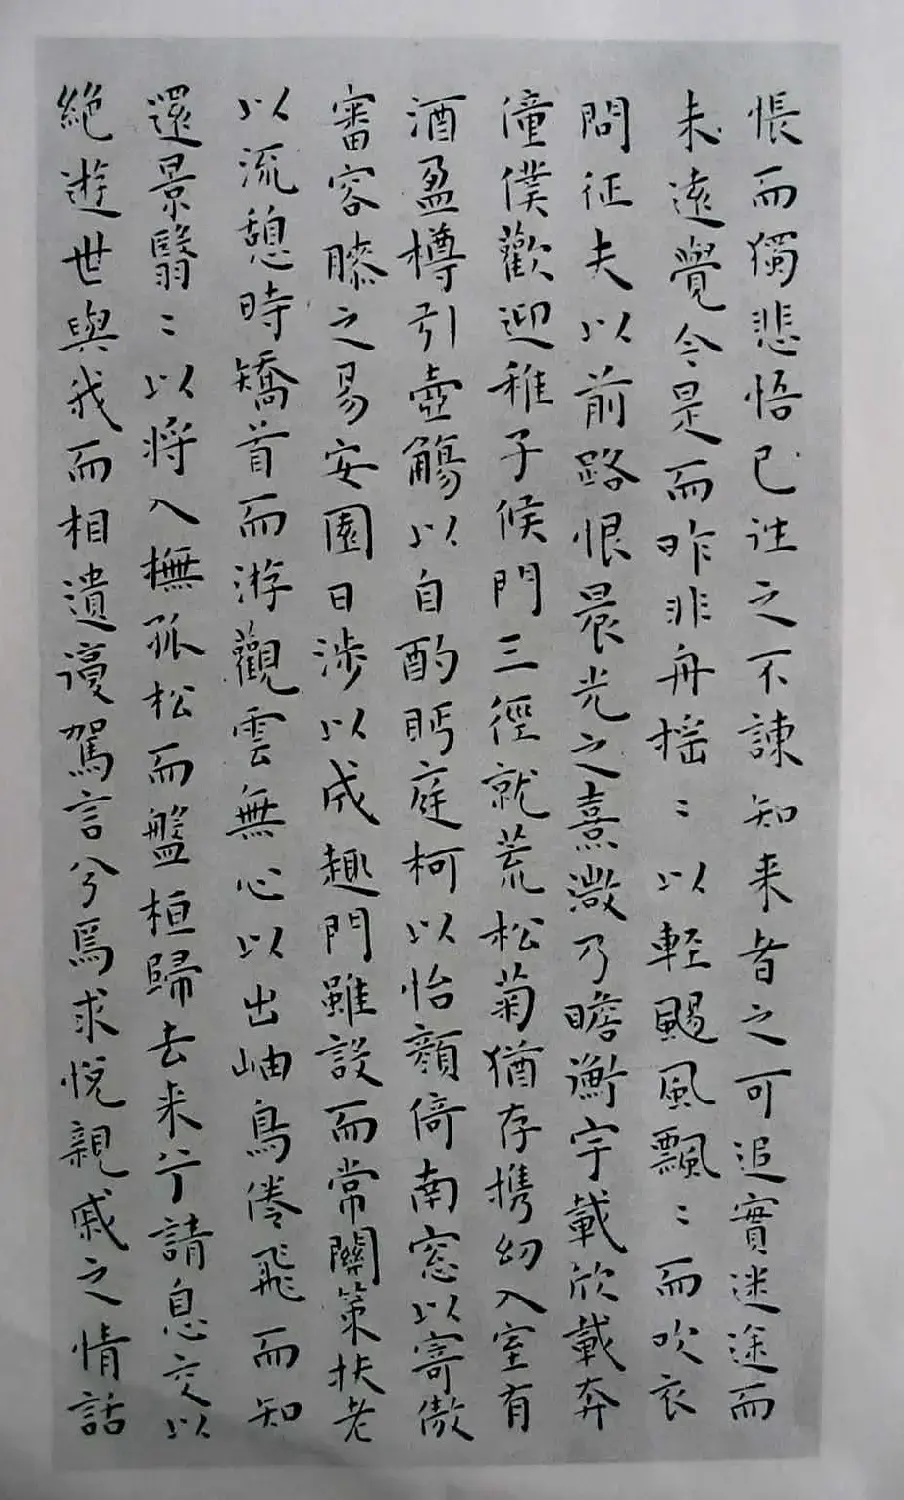 悵而獨悲悟已往之不諫知来者之可追實迷途而
未遠覺今是而昨非舟揺〻以輕颺風飄〻而吹衣
問征夫以前路恨晨光之熹微乃瞻衡宇載欣載奔
僮僕歡迎稚子候門三徑就荒松菊猶存携幼入室有
酒盈樽引壺觴以自酌眄庭柯以怡顔倚南窓以寄傲
審容膝之易安園日渉以成趣門雖設而常關策扶老
以流憩時矯首而游觀雲無心以出岫鳥倦飛而知
還景翳〻以将入撫孤松而盤桓歸去来兮請息交以
絶遊世與我而相遺復駕言兮焉求悦親戚之情話